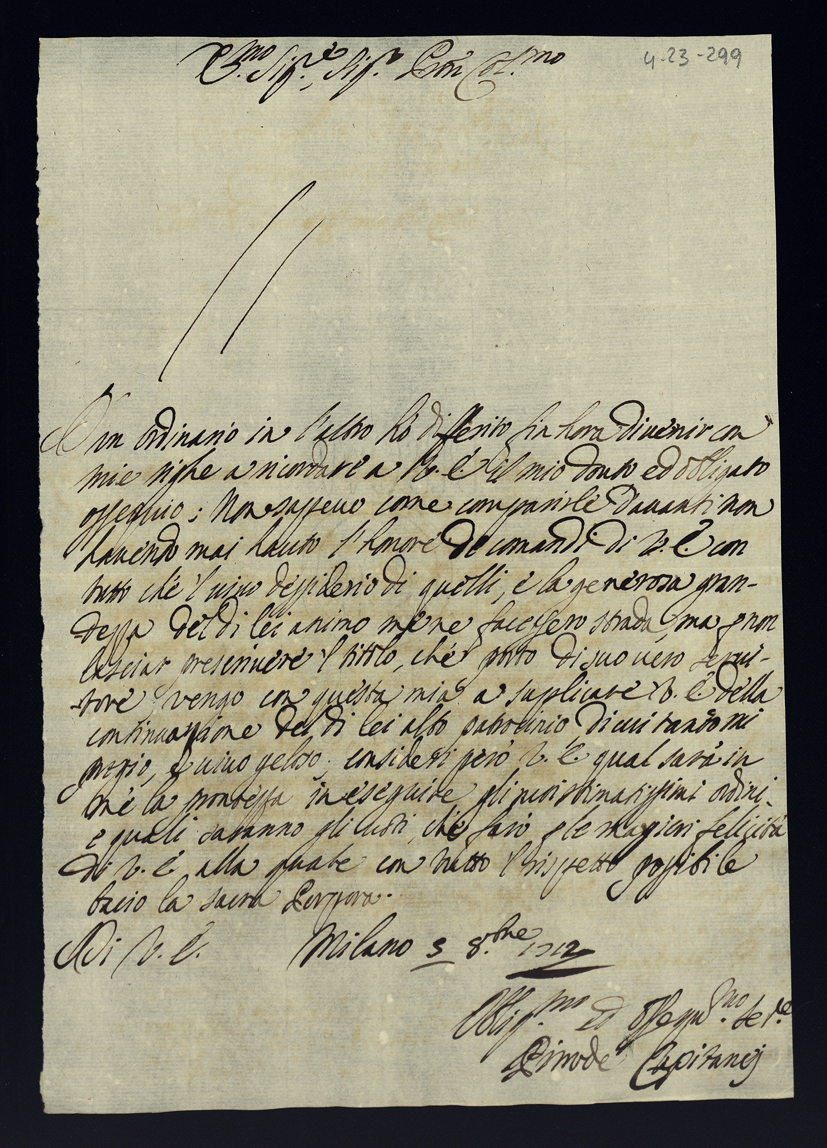 E.mo Sig.e, Sig.e Pron Col.mo
4-23-299
D'un ordinario in l'altro hò differito fin hora di venir con
mie righe a ricordare a V. E. il mio douto ed obligato
ossequio; Non sapeuo come comparirle dauanti non
hauendo mai hauto l'honore de comandi di V. E. con
tutto che l'uiuo dessiderio di quelli, e la generosa gran-
dezza del di lei animo me ne facessero strada, ma p non
lasciar prescriuere l titolo, che porto di suo uero serui-
tore vengo con questa mia a suplicare V. E. della
continuazzione del di lei alto patrocinio di cui tanto mi
pregio, e uiuo geloso. consideri però V. E. qual sarà in
me la prontezza in eseguire gli suoi stimatissimi ordini,
e quali saranno gli uoti, che farò p le magiori felicità
di V. E. alla quale con tutto l'rispetto possibile
bacio la sacra Porpora.
Di V. E. Milano 5 8.bre 1712
Oblig.mo ed ossequ.mo Se.re
Capitanej